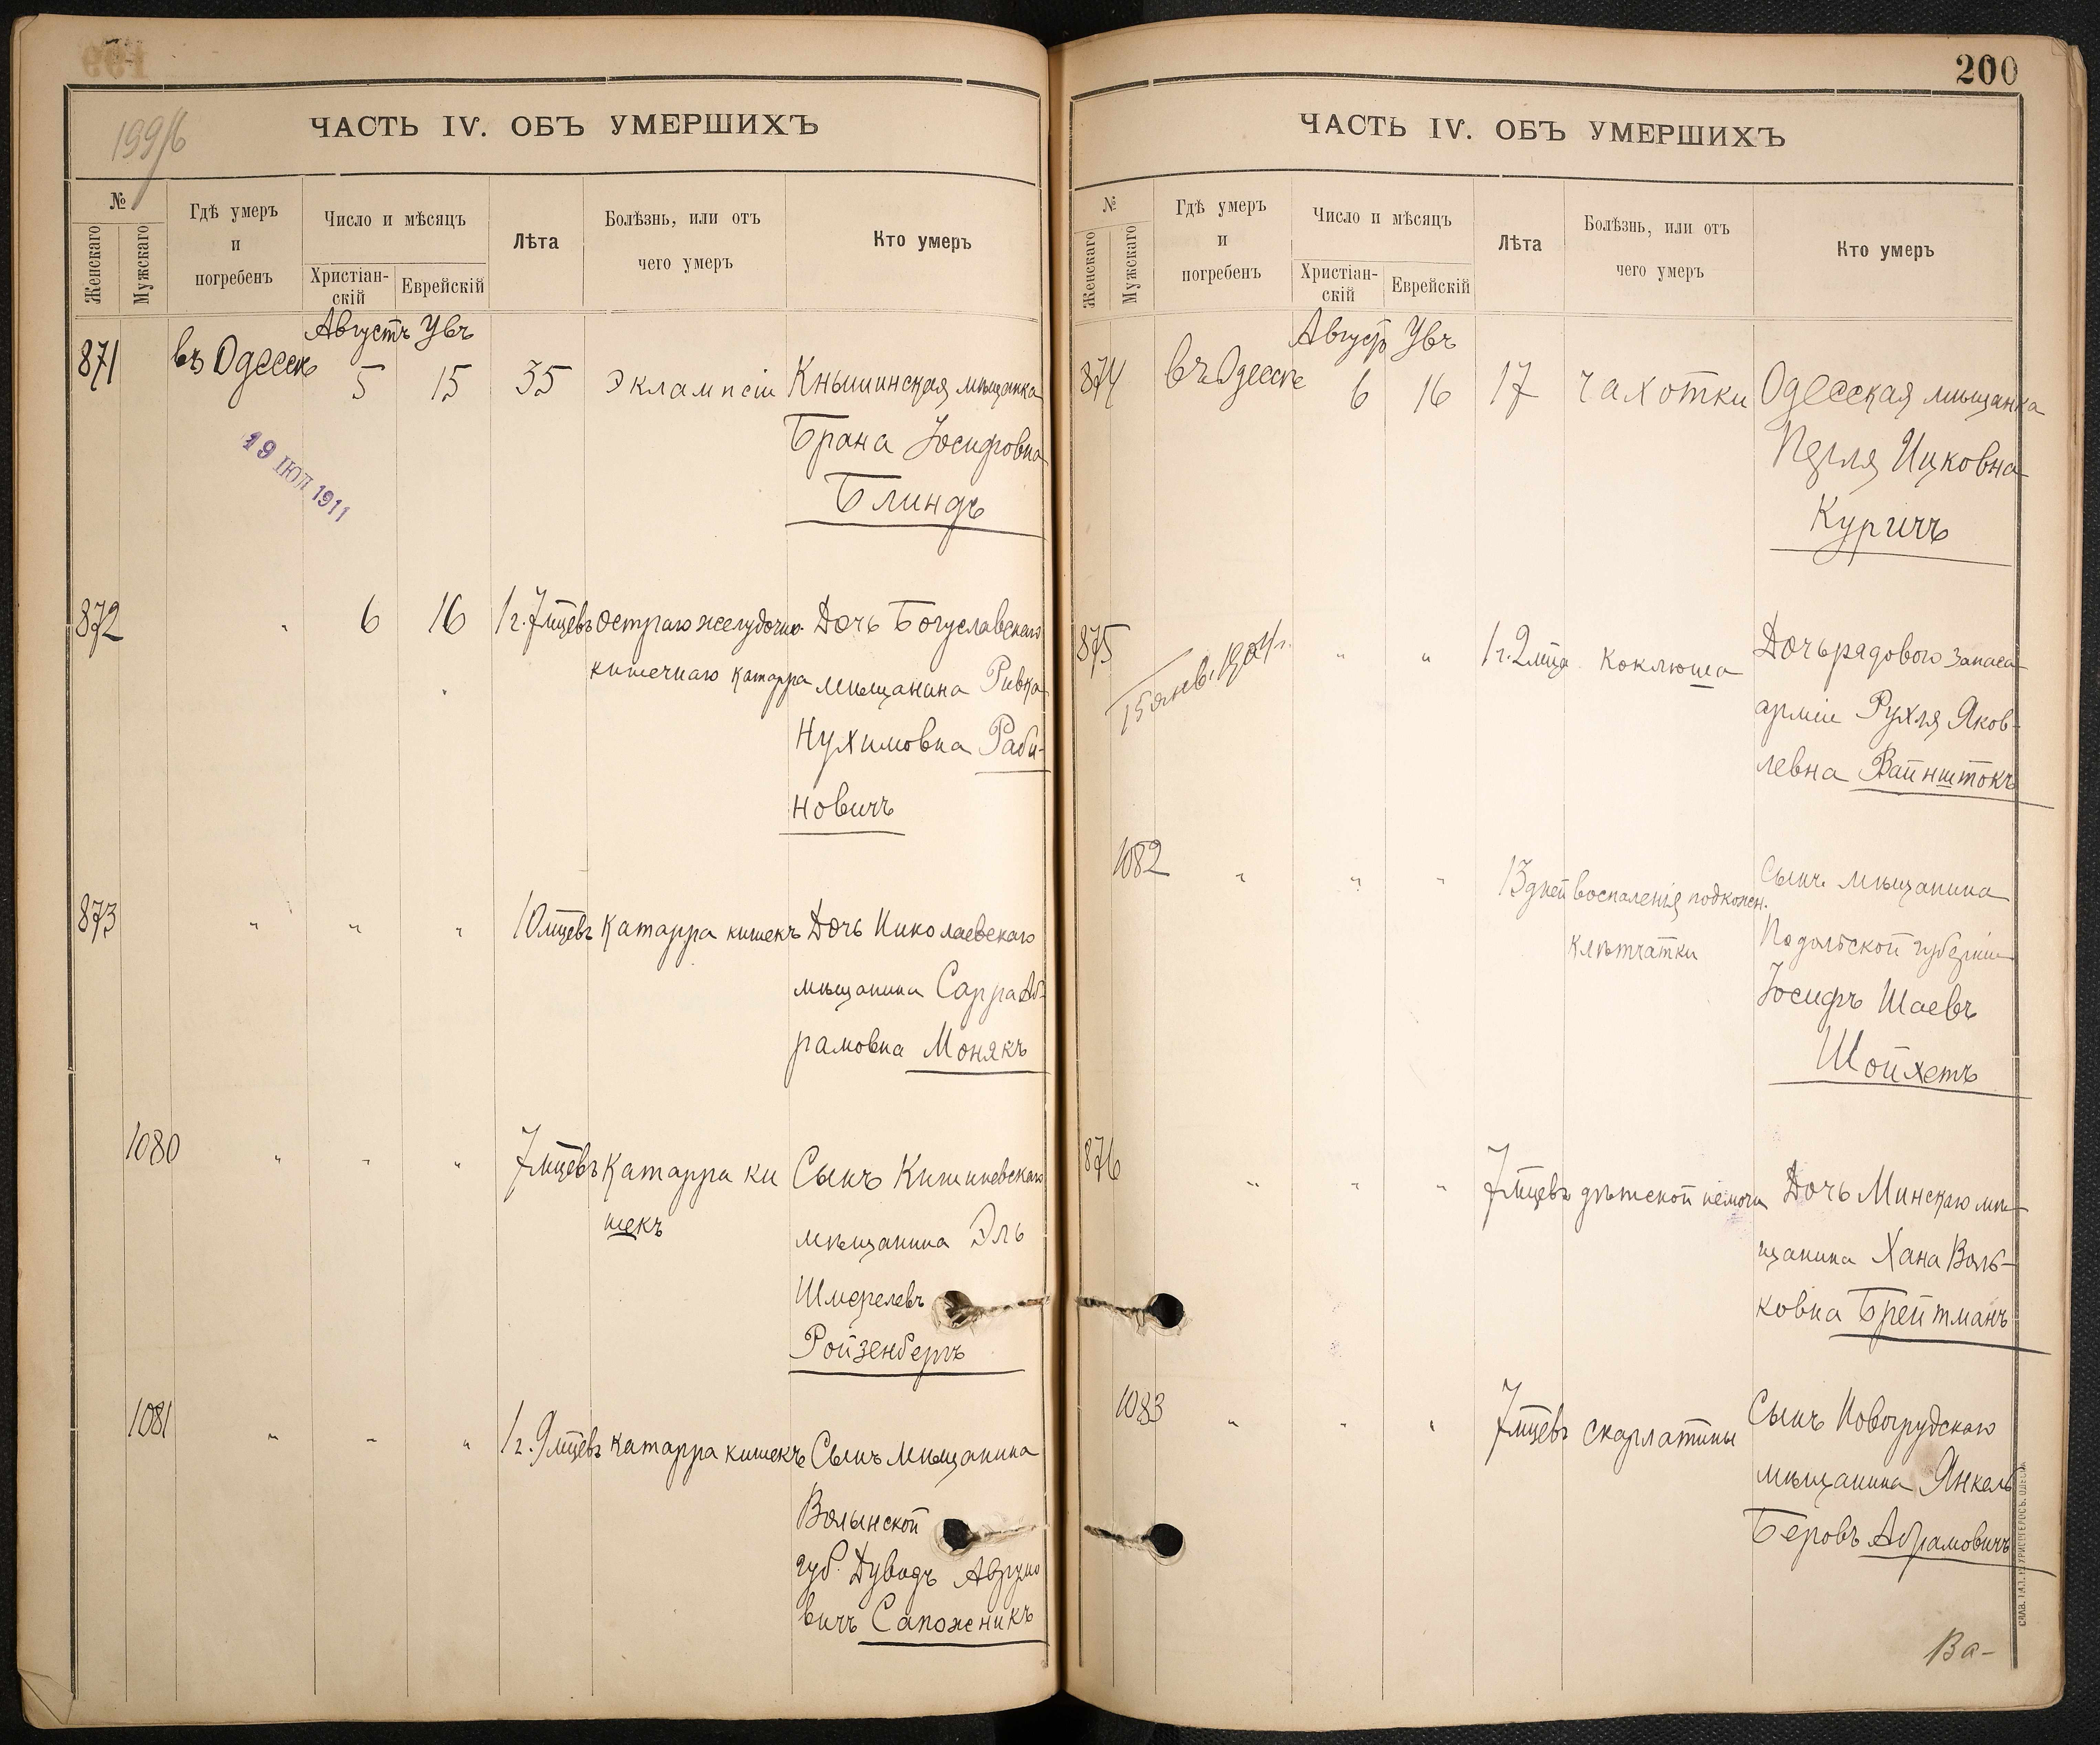 199/б
ЧАСТЬ IV. ОБЪ УМЕРШИХЪ
№
Женскаго
Мужскаго
Гдѣ умеръ
и
погребенъ
Число и мѣсяцъ
Христіан-
скій
Еврейскій
Лѣта
Болѣзнь, или отъ
чего умеръ
Кто умеръ
Августъ Увъ
871 въ Одессѣ 5 15 35 Эклампсіи Кнышинская мѣщанка
Брана Іосифовна
Блиндъ
19 ІЮЛ 1911
872 " 6 16 1 г. 7 мцевъ Остраго желудочно- Дочь Богуславскаго
кишечнаго катарра мѣщанина Ривка
Нухимовна Раби-
новичъ
873 " " " 10 мцевъ Катарра кишекъ Дочь Николаевскаго
мѣщанина Сарра Аб-
рамовна Монякъ
1080 " " " 7 мцевъ Катарра ки Сынъ Кишиневскаго
шекъ
мѣщанина Эль
Шмерелевъ
Ройзенбергъ
1081 " " " 1 г. 9 мцевъ Катарра кишекъ Сынъ мѣщанина
Волынской
губ. Дувидъ Авруmo
вичъ Сапожникъ
200
ЧАСТЬ IV. ОБЪ УМЕРШИХЪ
№
Женскаго
Мужскаго
Гдѣ умеръ
и
погребенъ
Число и мѣсяцъ
Христіан-
скій
Еврейскій
Лѣта
Болѣзнь, или отъ
чего умеръ
Кто умеръ
Августъ Увъ
874 въ Одессѣ 6 16 17 чахотки Одесская мѣщанка
Перля Ицковна
Куричъ
875 " " 1 г. 2 мца Коклюша Дочь рядового запаса
15 янв. 1904 г.
арміи Рухля Яков-
левна Вайнштокъ
1082 " " " 13 дней воспаленія подкожн. Сынъ мѣщанина
клѣтчатки Подольской губерніи
Іосифъ Шаевъ
Шойхетъ
876 " " " 7 мцевъ дѣтской немочи Дочь Минскаго мѣ-
щанина Хана Воль-
ковна Брейтманъ
1083 " " " 7 мцевъ Скарлатины Сынъ Новогрудскаго
мѣщанина Янкель
Беровъ Абрамовичъ
Ва-